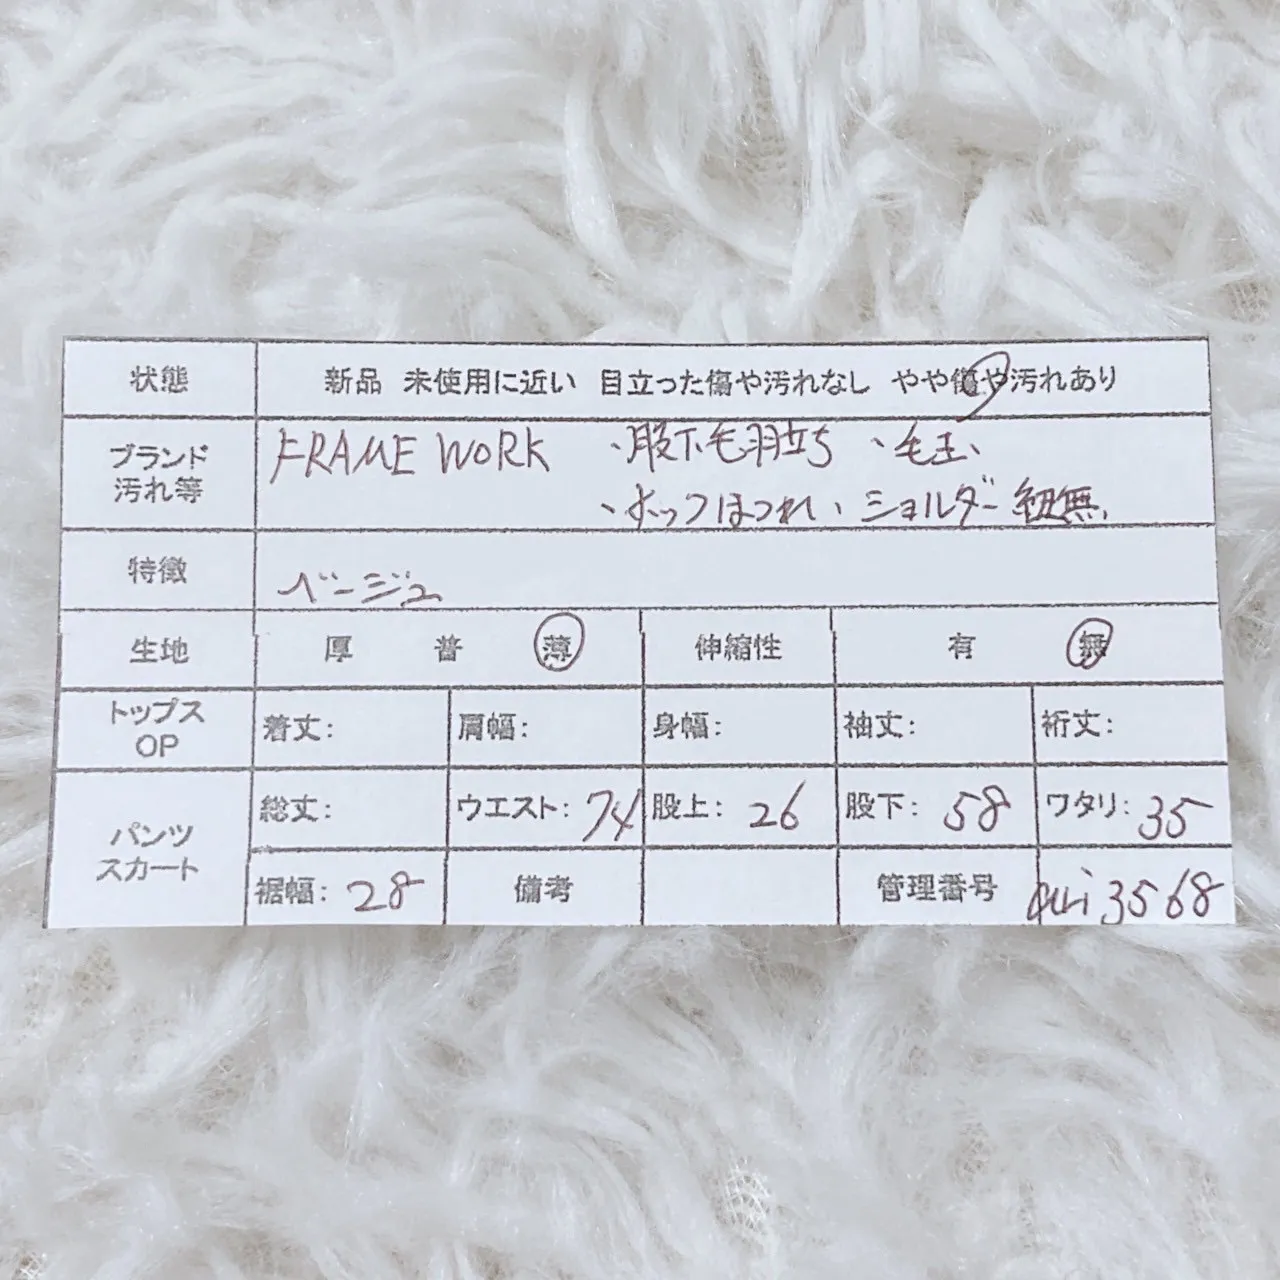 状態 新品 未使用に近い 目立った傷や汚れなし やや傷や汚れあり
ブランド 汚れ等 FRAME WORK 、股下毛羽立ち 、毛玉、
、ホックほつれ、ショルダー紐無、
特徴 ベージュ
生地 厚 普 薄 伸縮性 有 無
トップス OP 着丈: 肩幅: 身幅: 袖丈: 裄丈:
パンツ スカート 総丈: ウエスト: 74 股上: 26 股下: 58 ワタリ: 35
裾幅: 28 備考 管理番号 3568